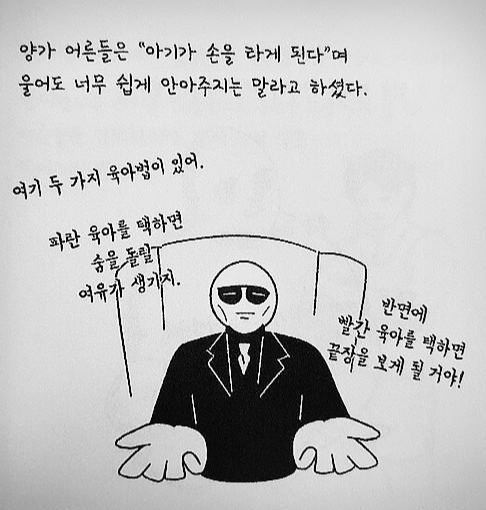 양가 어른들은 “아기가 손을 타게 된다”며
울어도 너무 쉽게 안아주지는 말라고 하셨다.
여기 두 가지 육아법이 있어.
파란 육아를 택하면
숨을 돌릴
여유가 생기지.
반면에
빨간 육아를 택하면
끝장을 보게 될 거야!